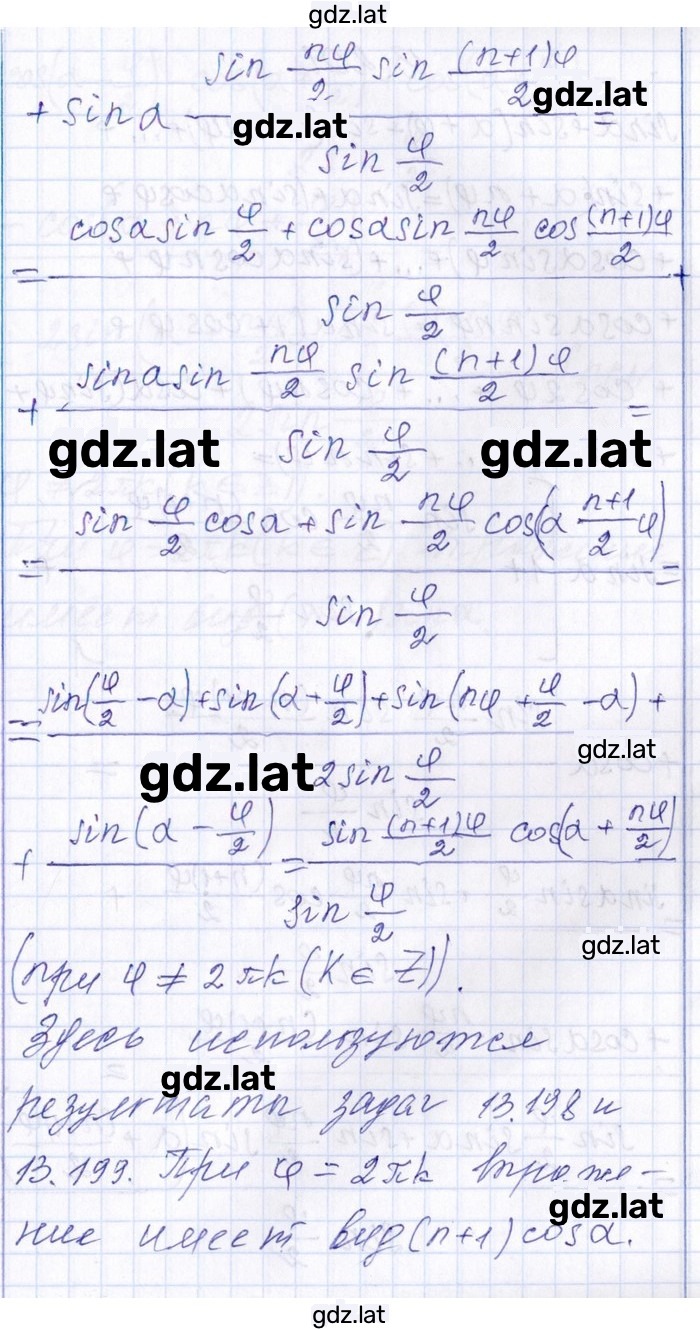 gdz.lat
+ sin α (sin nφ/2 sin (n+1)φ/2)/(sin φ/2) =
gdz.lat
gdz.lat
= (cos α sin φ/2 + cos α sin nφ/2 cos (n+1)φ/2)/(sin φ/2) +
+ (sin α sin nφ/2 sin (n+1)φ/2)/(sin φ/2) =
gdz.lat gdz.lat
= (sin φ/2 cos α + sin nφ/2 cos(α n+1/2 φ))/(sin φ/2) =
= sin(φ/2 - α) + sin(α + φ/2) + sin(nφ + φ/2 - α) +
gdz.lat
gdz.lat
2 sin φ/2
+ sin(α - φ/2) = (sin (n+1)φ/2 cos(α + nφ/2))/(sin φ/2)
gdz.lat
(при φ ≠ 2πk (K ∈ Z)).
Здесь используются
gdz.lat
результаты задач 13.198 и
13.199. При φ = 2πk выраже-
gdz.lat
ние имеет вид (n+1) cos α.
gdz.lat